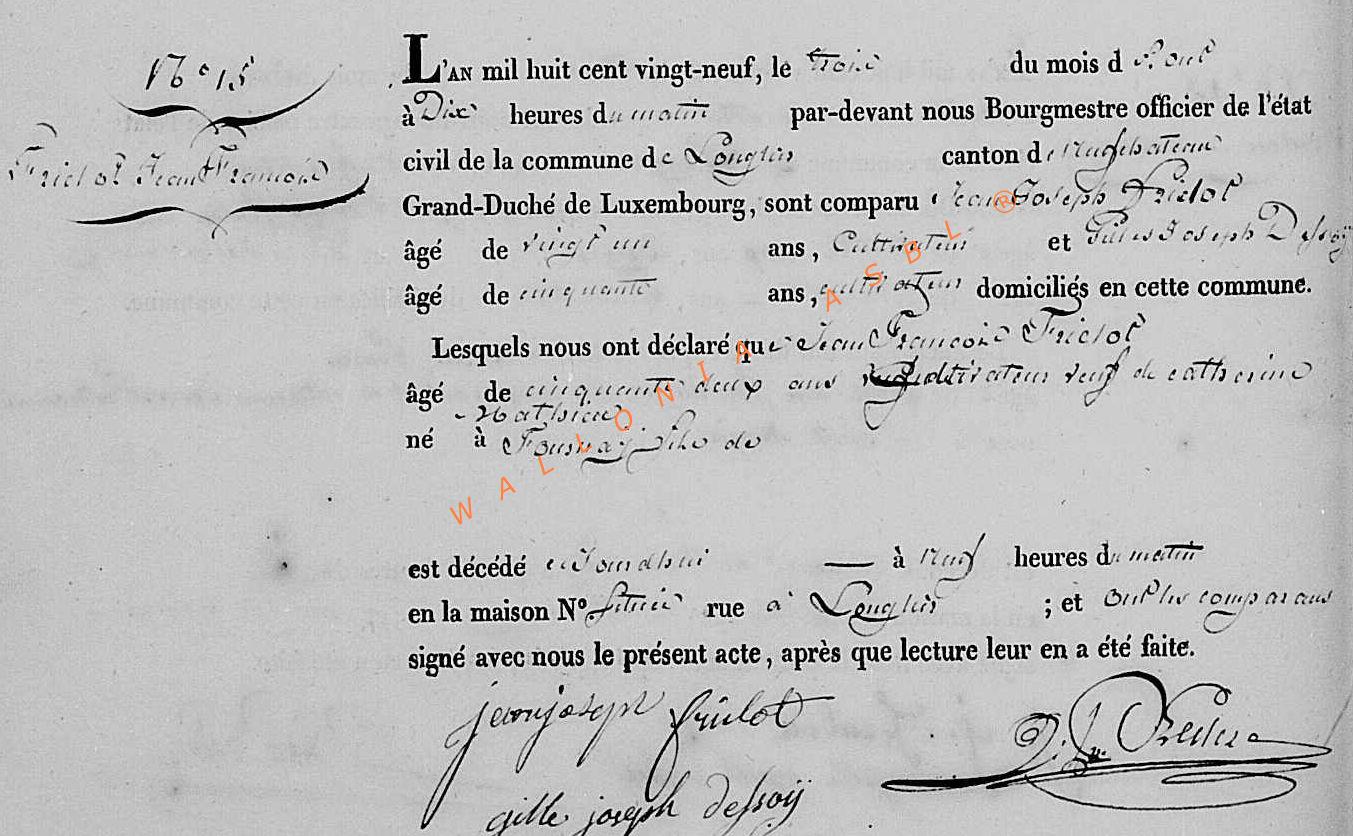 N° 15
Frictot Jean François
L'AN mil huit cent vingt-neuf, le trois du mois d'Aout
à Dix heures du matin par-devant nous Bourgmestre officier de l'état
civil de la commune de Longlier canton de Neufchateau
Grand-Duché de Luxembourg, sont comparu Jean Joseph Frictot
âgé de vingt un ans, Cultivateur et Gilles Joseph Dessoÿ
âgé de cinquante ans, cultivateur domiciliés en cette commune.
Lesquels nous ont déclaré que Jean François Frictot
âgé de cinquante deux ans cultivateur veuf de catherine
Mathieu
né à Tournay fils de
est décédé aujourdhui — à neuf heures du matin
en la maison N° située rue à Longlier ; et ont les comparans
signé avec nous le présent acte, après que lecture leur en a été faite.
jean joseph frictot
gille joseph dessoÿ
WALLONIA ASBL ®